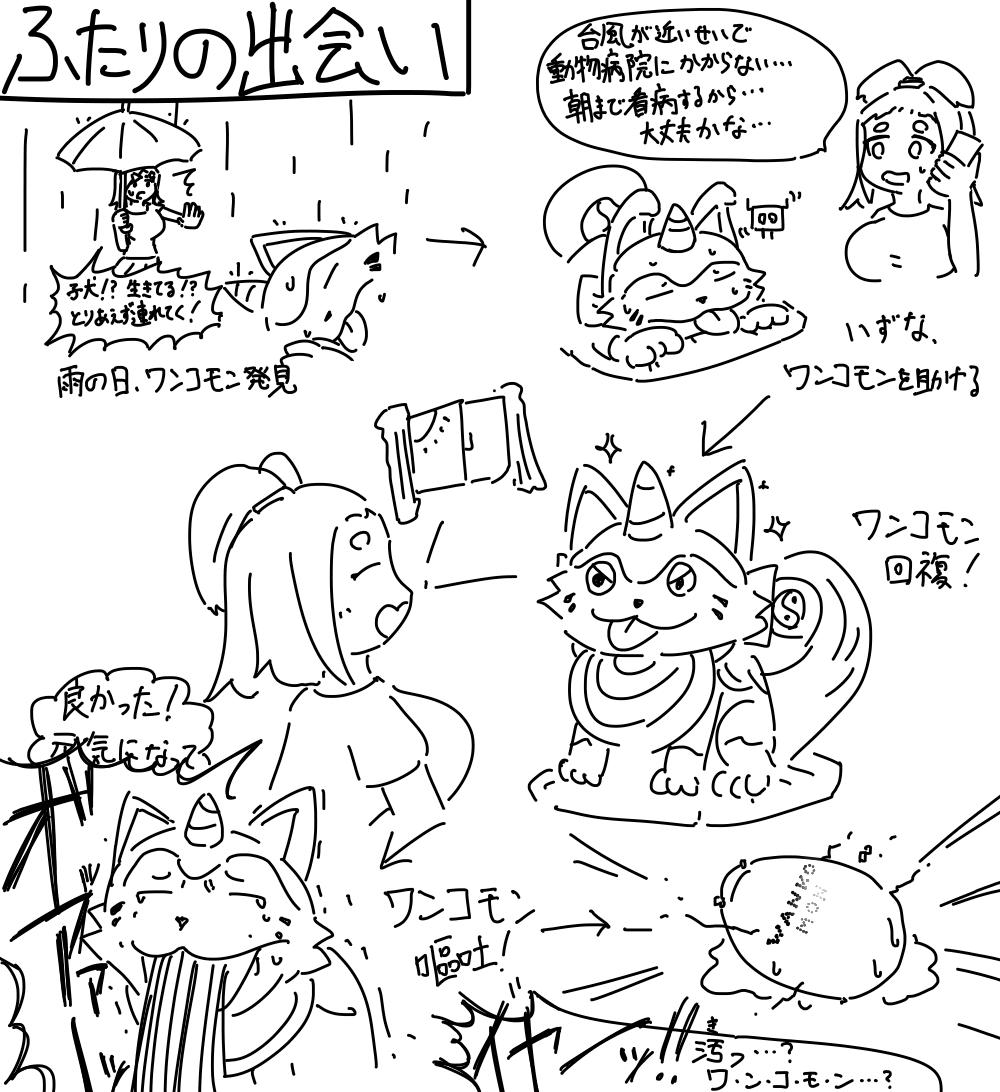 ふたりの出会い
台風が近いせいで
動物病院にかからない…
朝まで看病するから…
大丈夫かな…
子犬!?生きてる!?
とりあえず連れてく!
雨の日、ワンコモン発見
いずな、
ワンコモンを助ける
ワンコモン
回復!
良かった!
元気になって、
オ
ワンコモン
嘔吐!
WANKO
MON
き
汚っ…?
ワ・ン・コ・モ・ン…?